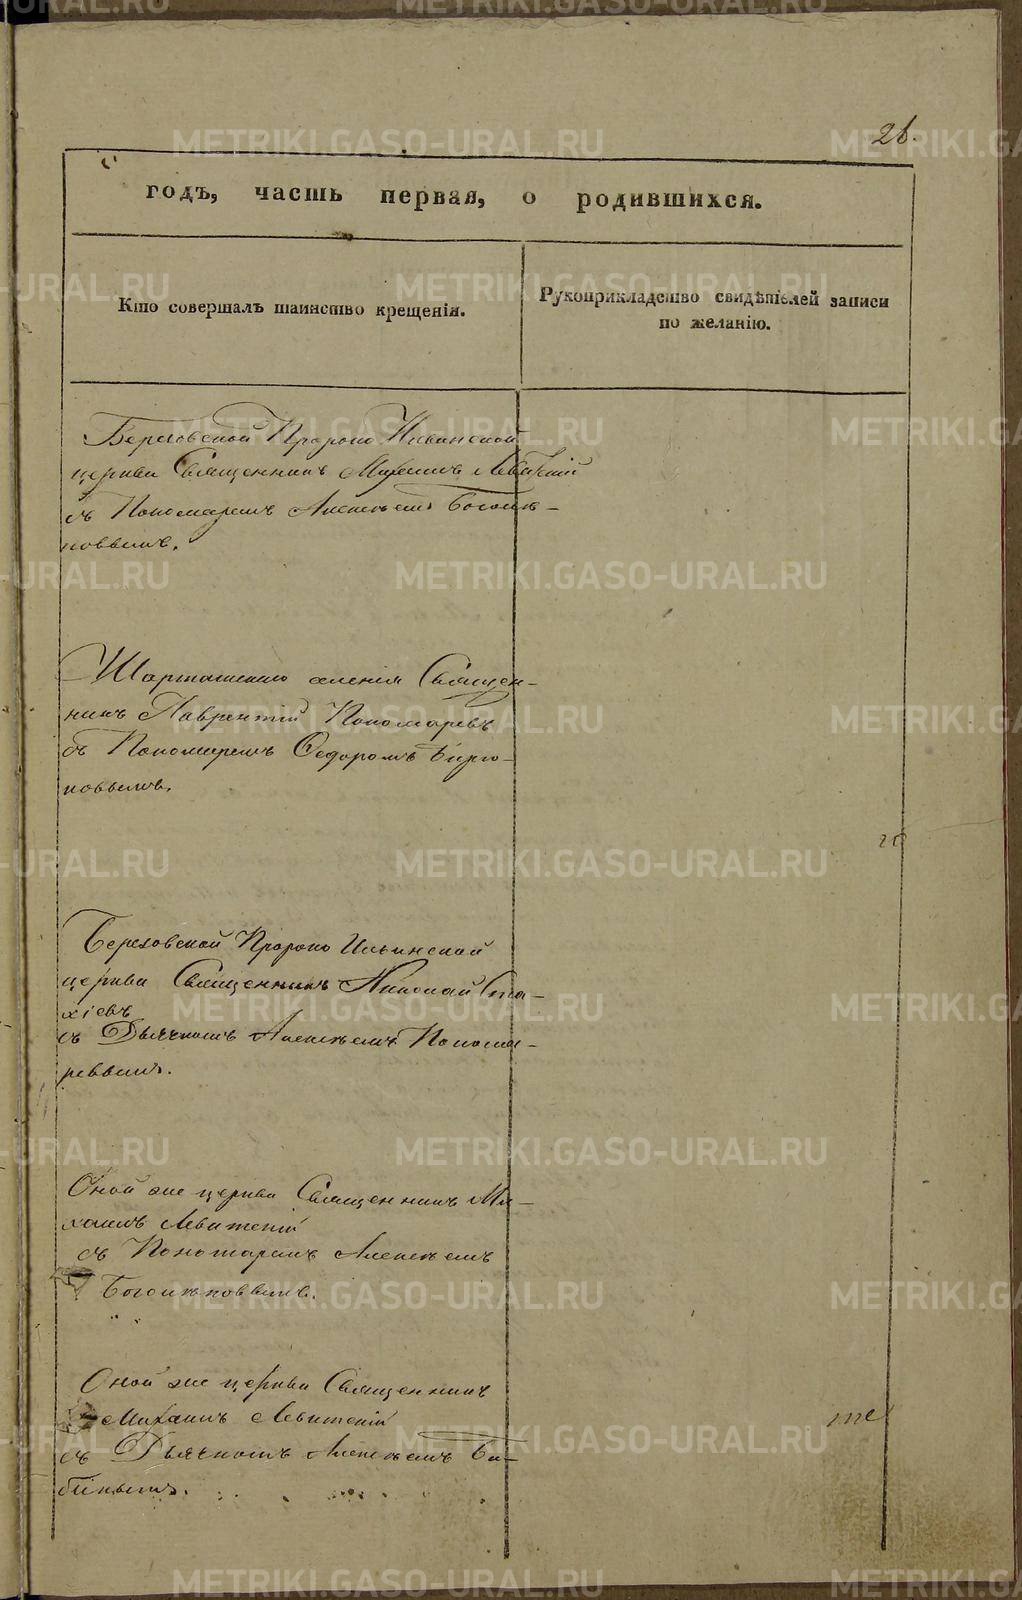 26.
годъ, часть первая, о родившихся.
Кто совершалъ таинство крещенія.
Рукоприкладство свидѣтелей записи
по желанію.
Березовской Пророко Ильинской
церкви Священникъ Михаилъ Левитскій
съ Пономаремъ Алексѣемъ Боголѣ-
повымъ.
Шарташскаго селенія Священ-
никъ Лаврентій Пономаревъ
съ Пономаремъ Федоромъ Бирю-
ковымъ.
Березовской Пророко Ильинской
церкви Священникъ Николай Ста-
хіевъ
съ Дьячкомъ Алексѣемъ Понома-
ревымъ.
Оной же церкви Священникъ Ми-
хаилъ Левитскій
съ Пономаремъ Алексѣемъ
Боголѣповымъ.
Оной же церкви Священникъ
Михаилъ Левитскій
съ Дьячкомъ Алексѣемъ
METRIKI.GASO-URAL.RU